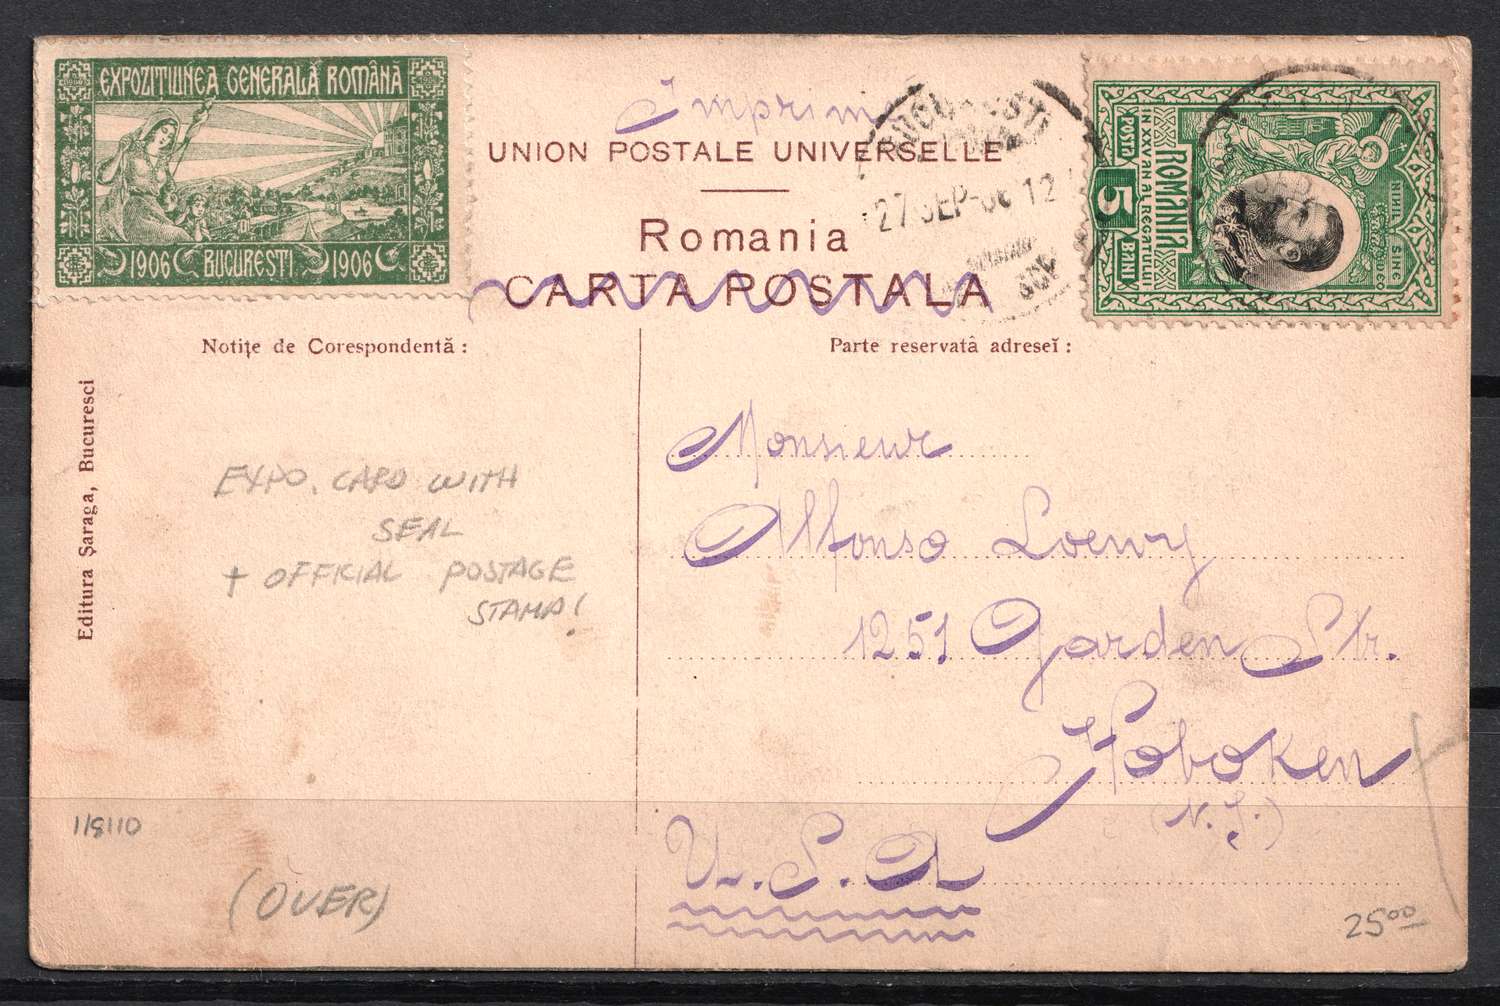 EXPOZITIUNEA GENERALĂ ROMÂNĂ
1906 BUCUREȘTI 1906
Imprim
UNION POSTALE UNIVERSELLE
Romania
CARTA POSTALA
27 SEP 06 12
POSTA 5 BANI
ROMÂNIA
NIHIL SINE DEO
Notițe de Corespondentă:
Parte reservată adreseĭ:
Editura Șaraga, Bucuresci
EXPO. CARD WITH
SEAL
+ OFFICIAL POSTAGE
STAMP!
Monsieur
Alfonso Loewy
1251 Garden Str.
Hoboken
(N.J.)
U.S.A
(OVER)
2500